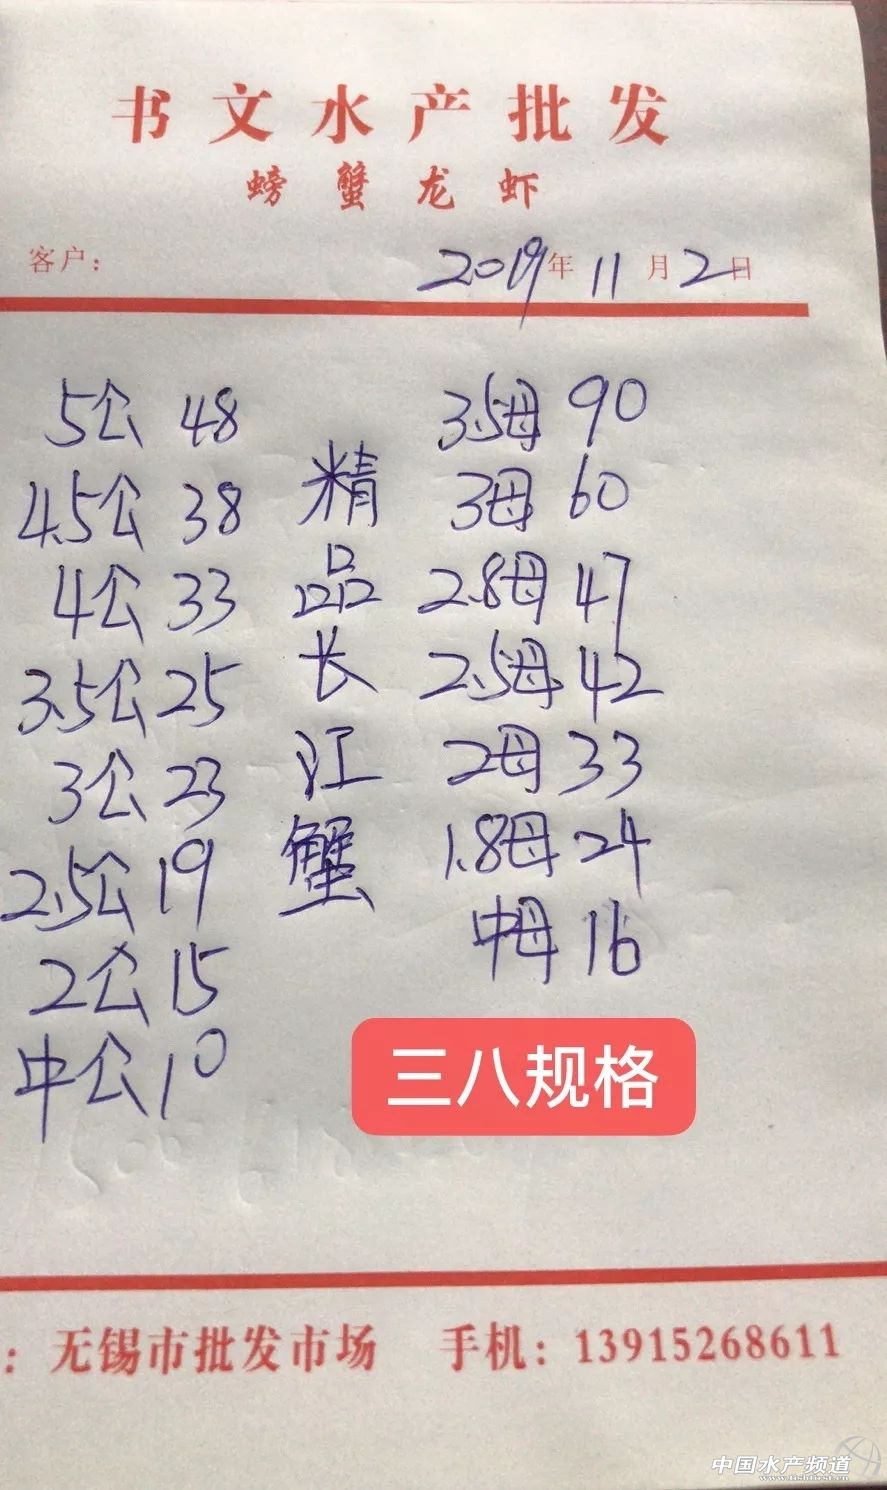 书文水产批发
螃蟹龙虾
客户：
2019年11月2日
5公 48
4.5公 38
4公 33
3.5公 25
3公 23
2.5公 19
2公 15
中公 10
精品长江蟹
3.5母 90
3母 60
2.8母 47
2.5母 42
2母 33
1.8母 24
中母 16
三八规格
：无锡市批发市场 手机：13915268611
中国水产频道
www.fishfirst.cn